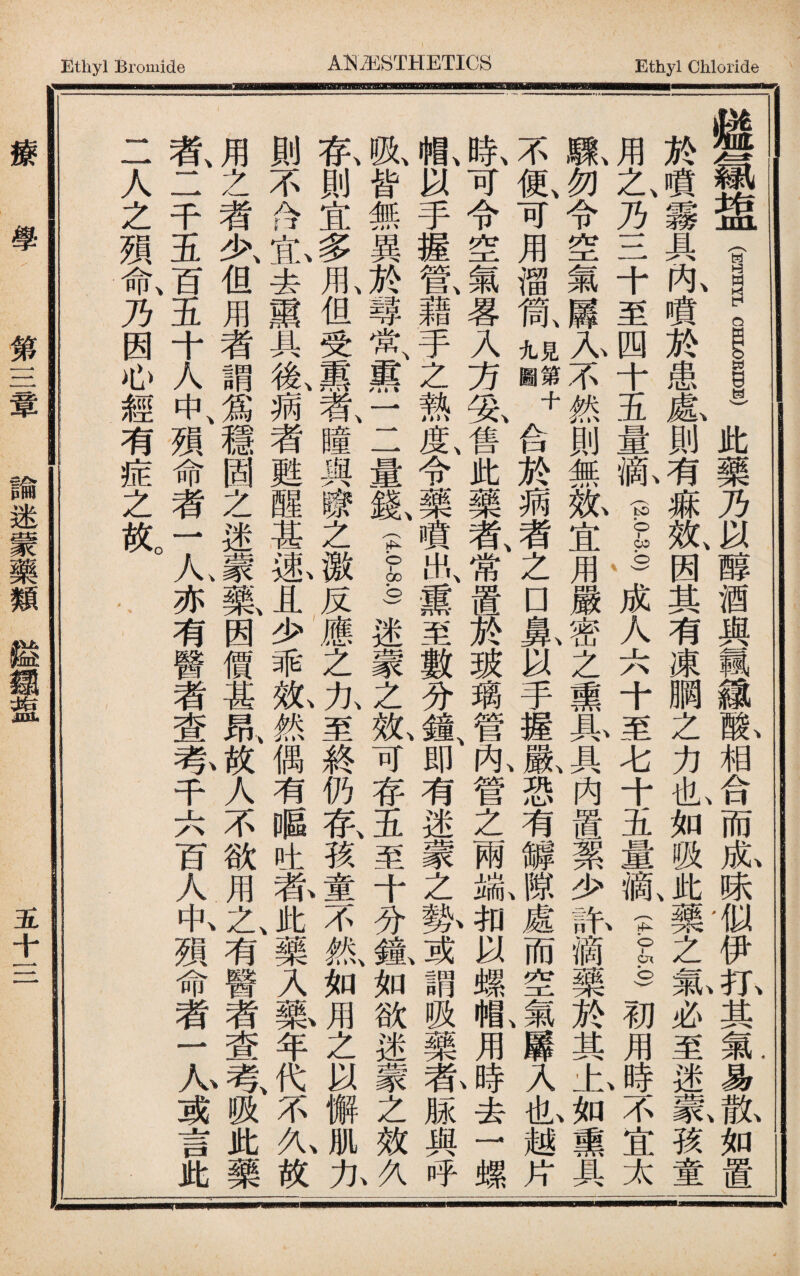 Ethyl Bromide
ANÆSTHETICS
Ethyl Chloride
(ETHYL CHLORIDE) 此藥乃以醇酒與酸、相合而成、味似伊打、其氣易散、如置
於噴霧具內、噴於患處、則有痳效、因其有凍腘之力也、如吸此藥之氣、必至迷蒙、孩童
用之、乃三十至四十五量滴、(2.0-3.0) 成人六十至七十五量滴、(4.0-5.0) 初用時不宜太
驟、勿令空氣羼入、不然則無效、宜用嚴密之熏具、具內置絮少許、滴藥於其上、如熏具
不便、可用溜筒、見第十九圖 合於病者之口鼻、以手握嚴、恐有罅隙處而空氣羼入也、越片
時、可令空氣畧入方妥、售此藥者、常置於玻璃管內、管之兩端、扣以螺帽、用時去一螺
帽、以手握管、藉手之熱度、令藥噴出、熏至數分鐘、即有迷蒙之勢、或謂吸藥者、脉與呼
吸、皆無異於尋常、熏一二量錢、(4.0-8.0) 迷蒙之效、可存五至十分鐘、如欲迷蒙之效久
存、則宜多用、但受熏者、瞳與瞭之激反應之力、至終仍存、孩童不然、如用之以懈肌力、
則不合宜、去熏具後、病者甦醒甚速、且少乖效、然偶有嘔吐者、此藥入藥、年代不久、故
用之者少、但用者謂爲穩固之迷蒙藥、因價甚昂、故人不欲用之、有醫者查考、吸此藥
者、二千五百五十人中、殞命者一人、亦有醫者查考、千六百人中、殞命者一人、或言此
二人之殞命、乃因心經有症之故。
療學 第三章 論迷蒙藥類 五十三